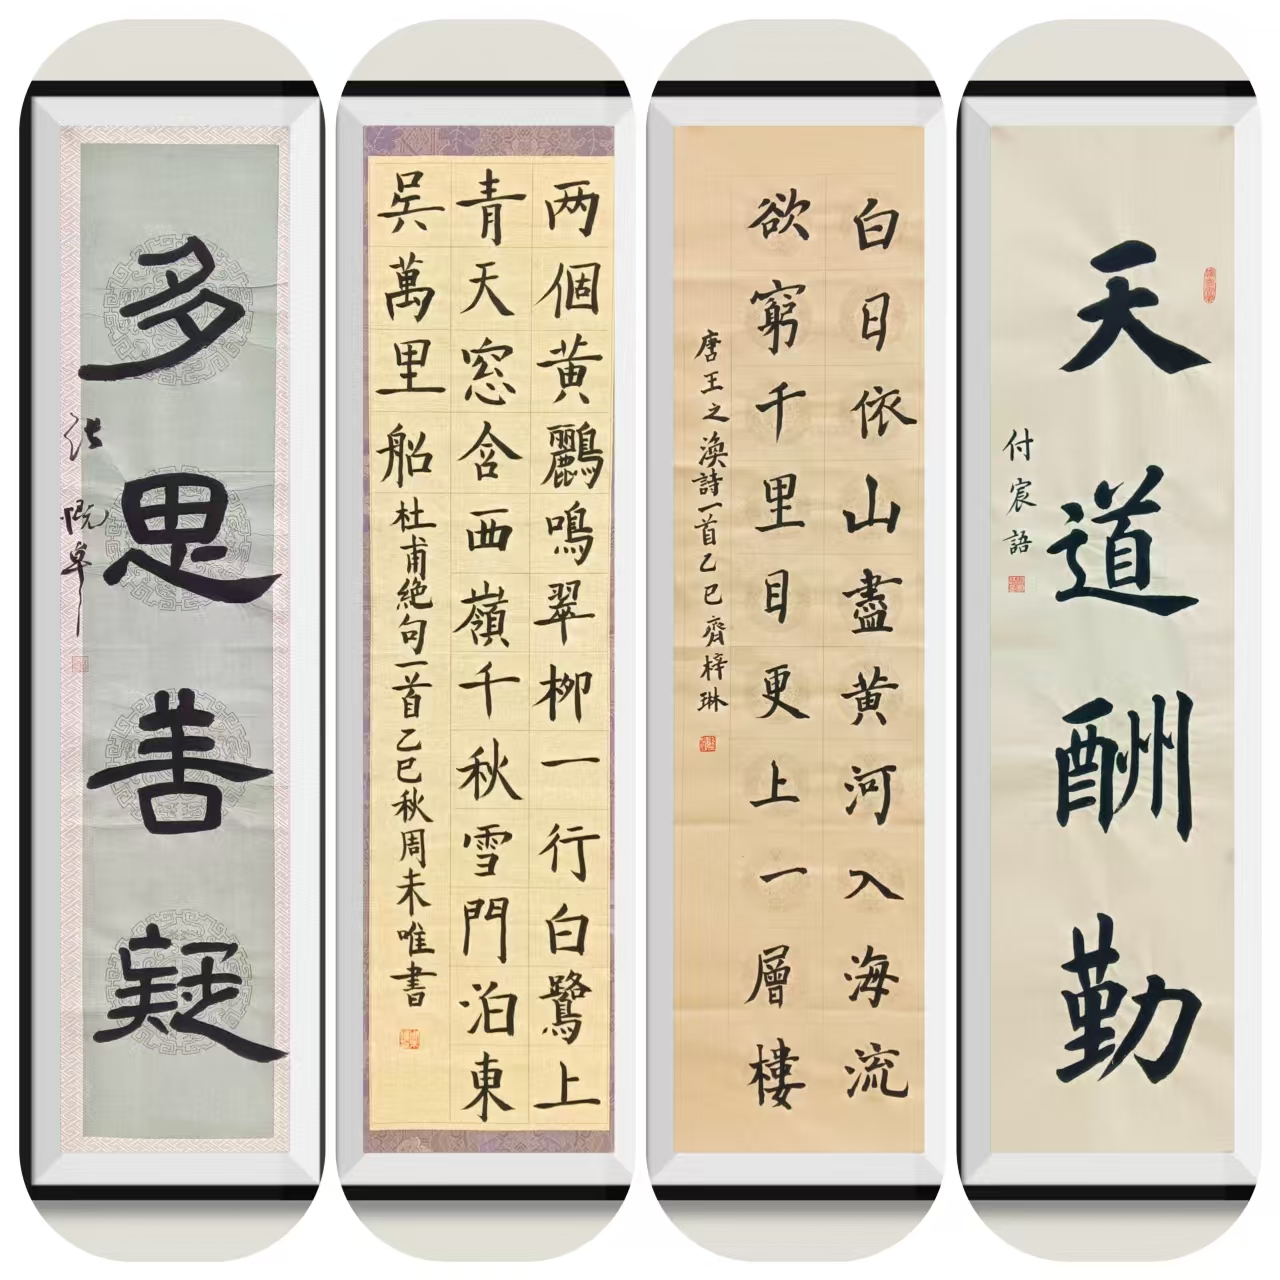 多思善疑
张
卓
两個黄鸝鳴翠柳一行白鷺上
青天窓含西嶺千秋雪門泊東
吴萬里船
杜甫絶句一首乙巳秋周未唯書
白日依山盡黄河入海流
欲窮千里目更上一層樓
唐王之渙詩一首乙巳齊梓琳
天道酬勤
付宸語